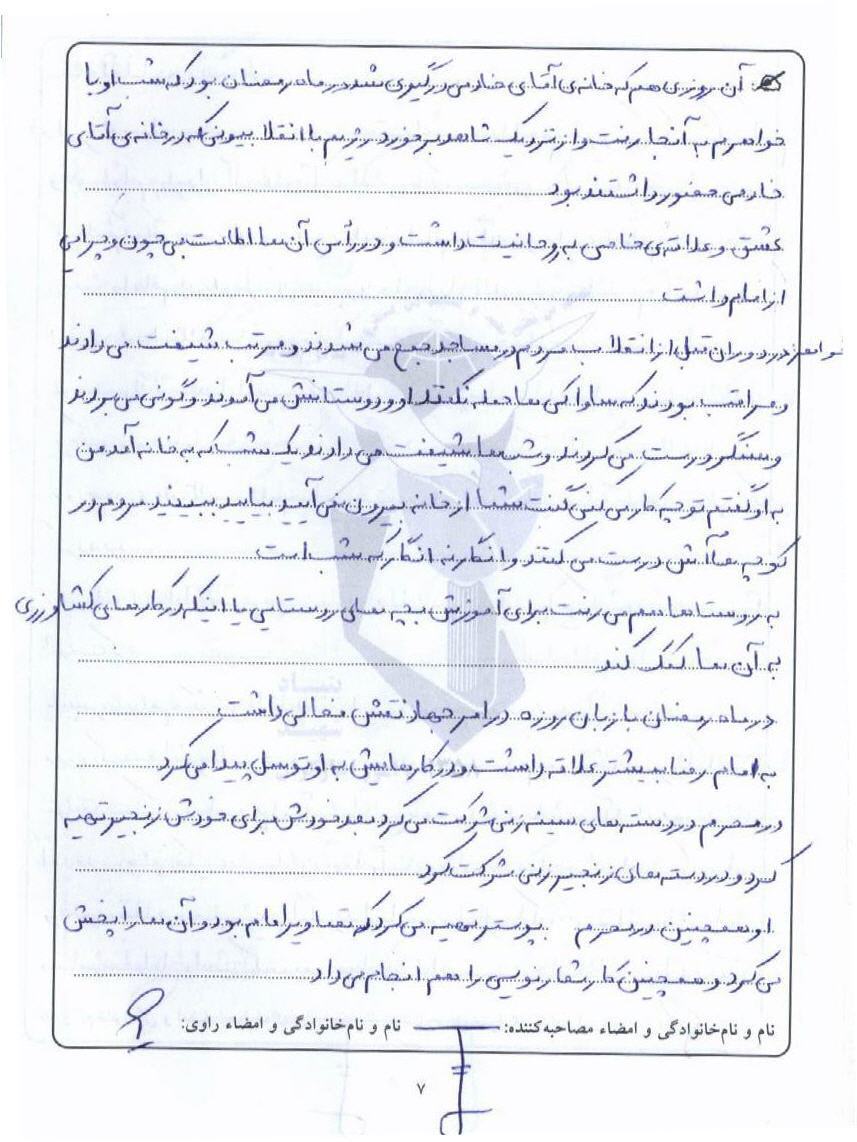 آن روزی هم که خانه‌ی آقای خادمی درگیری شد در ماه رمضان بود که شب او با
خواهرم به آنجا رفت و از نزدیک شاهد برخورد رژیم با انقلابیونی که در خانه‌ی آقای
خادمی حضور داشتند بود
عشق و علاقه‌ی خاصی به روحانیت داشت و در رأس آن ها اطاعت بی چون و چرایی
از امام داشت
در دوران قبل از انقلاب مردم در مساجد جمع می شدند و مرتب شیفت می دادند
و مراقب بودند که ساواکی ها حمله نکنند او و دوستانش می آمدند و گونی می بردند
و سنگر درست می کردند و شب ها شیفت می دادند یک شب که به خانه آمد من
به او گفتم تو چه کار می کنی گفت شما از خانه بیرون نمی آیید بیایید ببینید مردم در
کوچه ها آش درست می کنند و انگار نه انگار که شب است
به روستاها هم می رفت برای آموزش بچه های روستایی یا اینکه در کارهای کشاورزی
به آن ها کمک کند
در ماه رمضان با زبان روزه در امر جهاد نقش فعالی داشت
به امام رضا بیشتر علاقه داشت و در کارهایش به او توسل پیدا می کرد
در محرم در دسته های سینه زنی شرکت می کرد بعد خودش برای خودش زنجیر تهیه
کرد و در دسته های زنجیر زنی شرکت کرد
او همچنین در محرم پوستر تهیه می کرد که تصاویر امام بود و آن ها را پخش
می کرد و همچنین کار شعار نویسی را هم انجام می داد
نام و نام خانوادگی و امضاء مصاحبه کننده: نام و نام خانوادگی و امضاء راوی:
۷